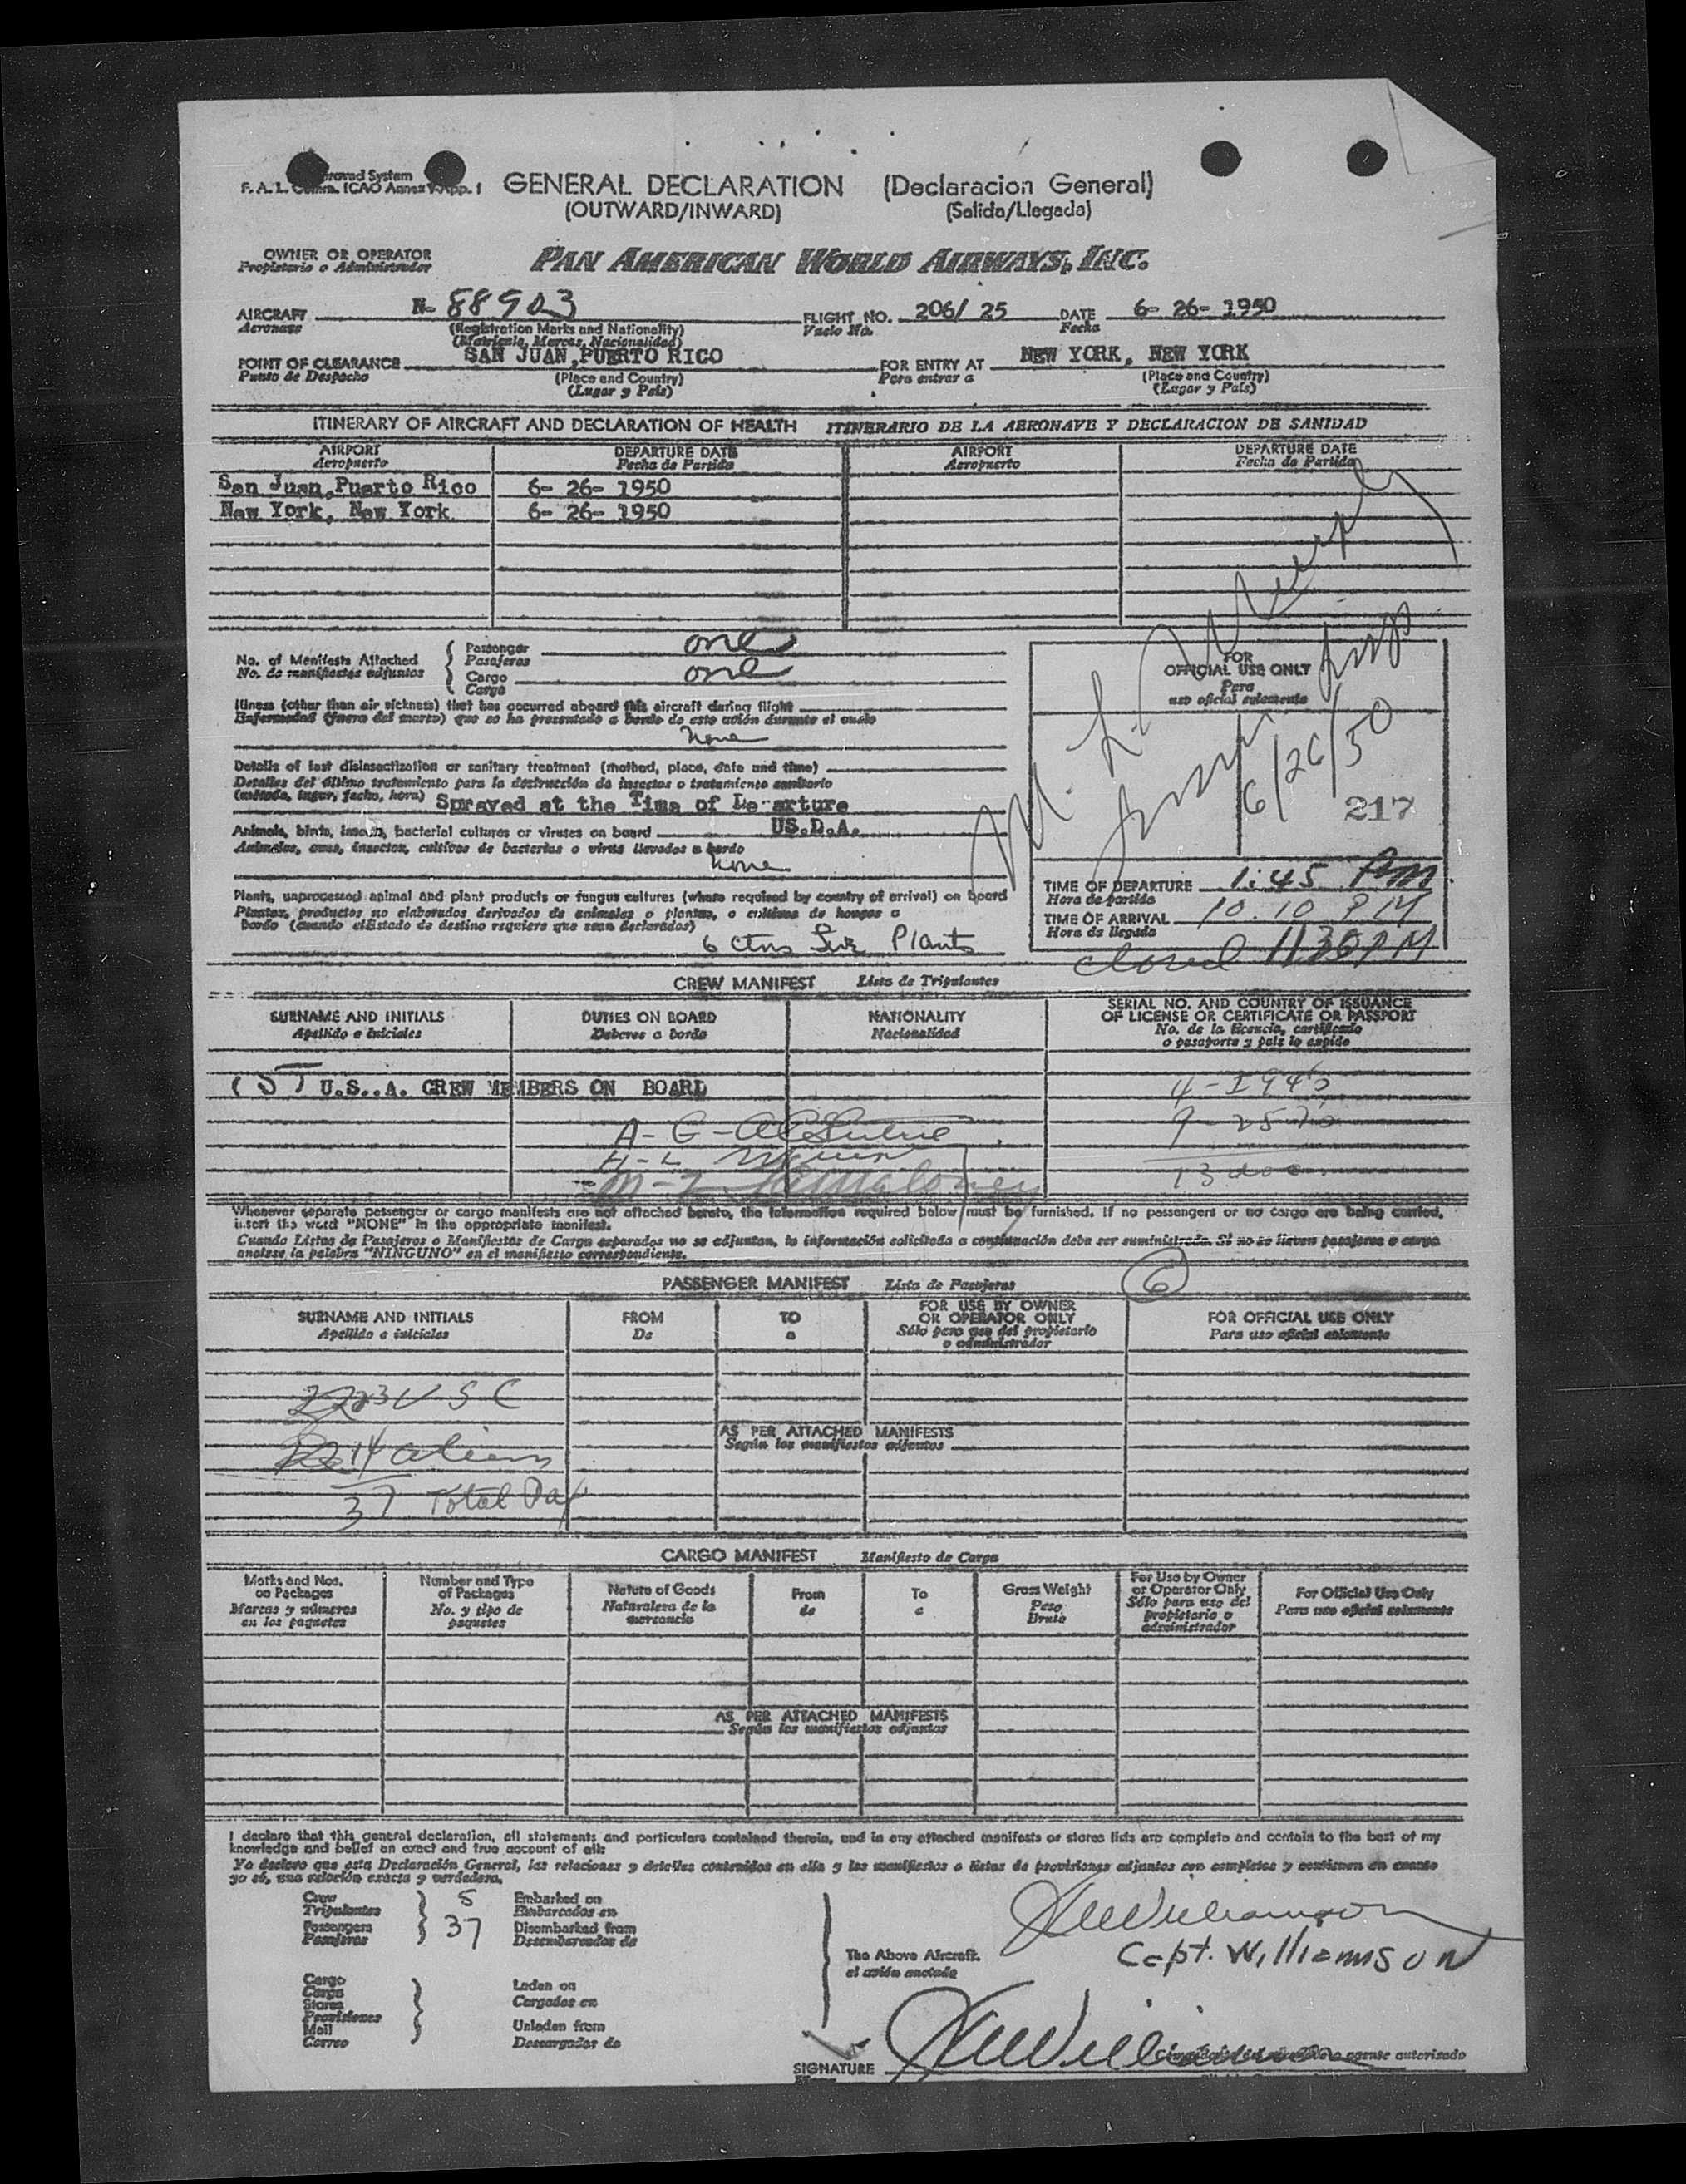 GENERAL DECLARATION (Declaracion General)
(OUTWARD/INWARD) (Salida/Llegada)
OWNER OR OPERATOR
Propietario o Administrador
PAN AMERICAN WORLD AIRWAYS, INC.
AIRCRAFT N- 88903 FLIGHT NO. 206/ 25 DATE 6- 26- 1950
Aeronave (Registration Marks and Nationality) Vuelo No. Fecha
(Matricula, Marcas, Nacionalidad)
POINT OF CLEARANCE SAN JUAN, PUERTO RICO FOR ENTRY AT NEW YORK, NEW YORK
Punto de Despacho (Place and Country) Para entrar a (Place and Country)
(Lugar y País) (Lugar y País)
ITINERARY OF AIRCRAFT AND DECLARATION OF HEALTH ITINERARIO DE LA AERONAVE Y DECLARACION DE SANIDAD
AIRPORT DEPARTURE DATE AIRPORT DEPARTURE DATE
Aeropuerto Fecha de Partida Aeropuerto Fecha de Partida
San Juan, Puerto Rico 6- 26- 1950
New York, New York 6- 26- 1950
No. of Manifests Attached
No. de manifiestos adjuntos
Passenger one
Pasajeros
Cargo one
Carga
FOR
OFFICIAL USE ONLY
Para
uso oficial solamente
Illness (other than air sickness) that has occurred aboard this aircraft during flight
Enfermedad (fuera del mareo) que se ha presentado a bordo de este avión durante el vuelo
None
6/26/50
217
Details of last disinsectization or sanitary treatment (method, place, date and time)
Detalles del último tratamiento para la destrucción de insectos o tratamiento sanitario
(método, lugar, fecha, hora) Sprayed at the Time of De arture
US.D.A.
Animals, birds, insects, bacterial cultures or viruses on board
Animales, aves, insectos, cultivos de bacterias o virus llevados a bordo
None
Plants, unprocessed animal and plant products or fungus cultures (where required by country of arrival) on board
Plantas, productos no elaborados derivados de animales o plantas, o cultivos de hongos a
bordo (cuando el Estado de destino requiere que sean declarados)
6 ctns Live Plants
TIME OF DEPARTURE 1:45 PM
Hora de partida
TIME OF ARRIVAL 10.10 PM
Hora de llegada
closed 11 30 PM
CREW MANIFEST Lista de Tripulantes
SURNAME AND INITIALS DUTIES ON BOARD NATIONALITY SERIAL NO. AND COUNTRY OF ISSUANCE
OF LICENSE OR CERTIFICATE OR PASSPORT
Apellido e iniciales Deberes a bordo Nacionalidad No. de la licencia, certificado
o pasaporte y país lo expide
(5) U.S..A. CREW MEMBERS ON BOARD
Whenever separate passenger or cargo manifests are not attached hereto, the information required below must be furnished. If no passengers or no cargo are being carried,
insert the word "NONE" in the appropriate manifest.
Cuando Listas de Pasajeros o Manifiestos de Carga separados no se adjuntan, la información solicitada a continuación debe ser suministrada. Si no se llevan pasajeros o carga
anotese la palabra "NINGUNO" en el manifiesto correspondiente.
PASSENGER MANIFEST Lista de Pasajeros 6
SURNAME AND INITIALS FROM TO FOR USE BY OWNER
OR OPERATOR ONLY FOR OFFICIAL USE ONLY
Apellido e iniciales De a Sólo para uso del propietario
o administrador Para uso oficial solamente
23 U S C
AS PER ATTACHED MANIFESTS
Según los manifiestos adjuntos
14 aliens
37 Total Pax
CARGO MANIFEST Manifiesto de Carga
Marks and Nos.
on Packages
Marcas y números
en los paquetes
Number and Type
of Packages
No. y tipo de
paquetes
Nature of Goods
Naturaleza de la
mercancia
From
de
To
a
Gross Weight
Peso
Bruto
For Use by Owner
or Operator Only
Sólo para uso del
propietario o
administrador
For Official Use Only
Para uso oficial solamente
AS PER ATTACHED MANIFESTS
Según los manifiestos adjuntos
I declare that this general declaration, all statements and particulars contained therein, and in any attached manifests or stores lists are complete and contain to the best of my
knowledge and belief an exact and true account of all:
Yo declaro que esta Declaración General, las relaciones y detalles contenidos en ella y los manifiestos o listas de provisiones adjuntos son completos y contienen en cuanto
yo sé, una relación exacta y verdadera.
Crew 5 Embarked on
Tripulantes Embarcados en
Passengers 37 Disembarked from
Pasajeros Desembarcados de
The Above Aircraft.
el avión anotado
Capt. Williamson
Cargo Laden on
Carga Cargados en
Stores
Provisiones
Mail Unladen from
Correo Descargador de
SIGNATURE